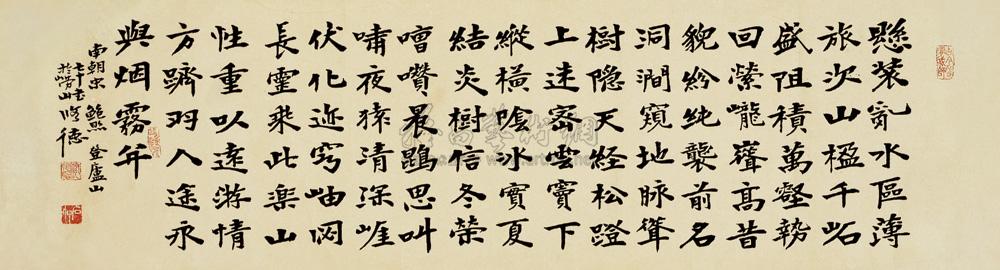 懸裝亂水區薄
旅次山楹千岩
盛阻積萬壑勢
回縈巃聳高昔
貌紛純襲前名
洞澗窺地脉聳
樹隐天經松蹬
上迷密雲竇下
縱橫陰冰實夏
結炎樹信冬榮
嘈囋晨鵾思叫
嘯夜猿清深崕
伏化迹窍岫罔
長靈乘此樂山
性重以遠遊情
方躋羽人途永
與烟霧并
南朝宋 鮑照 登廬山
於嶗山 德
藝術網